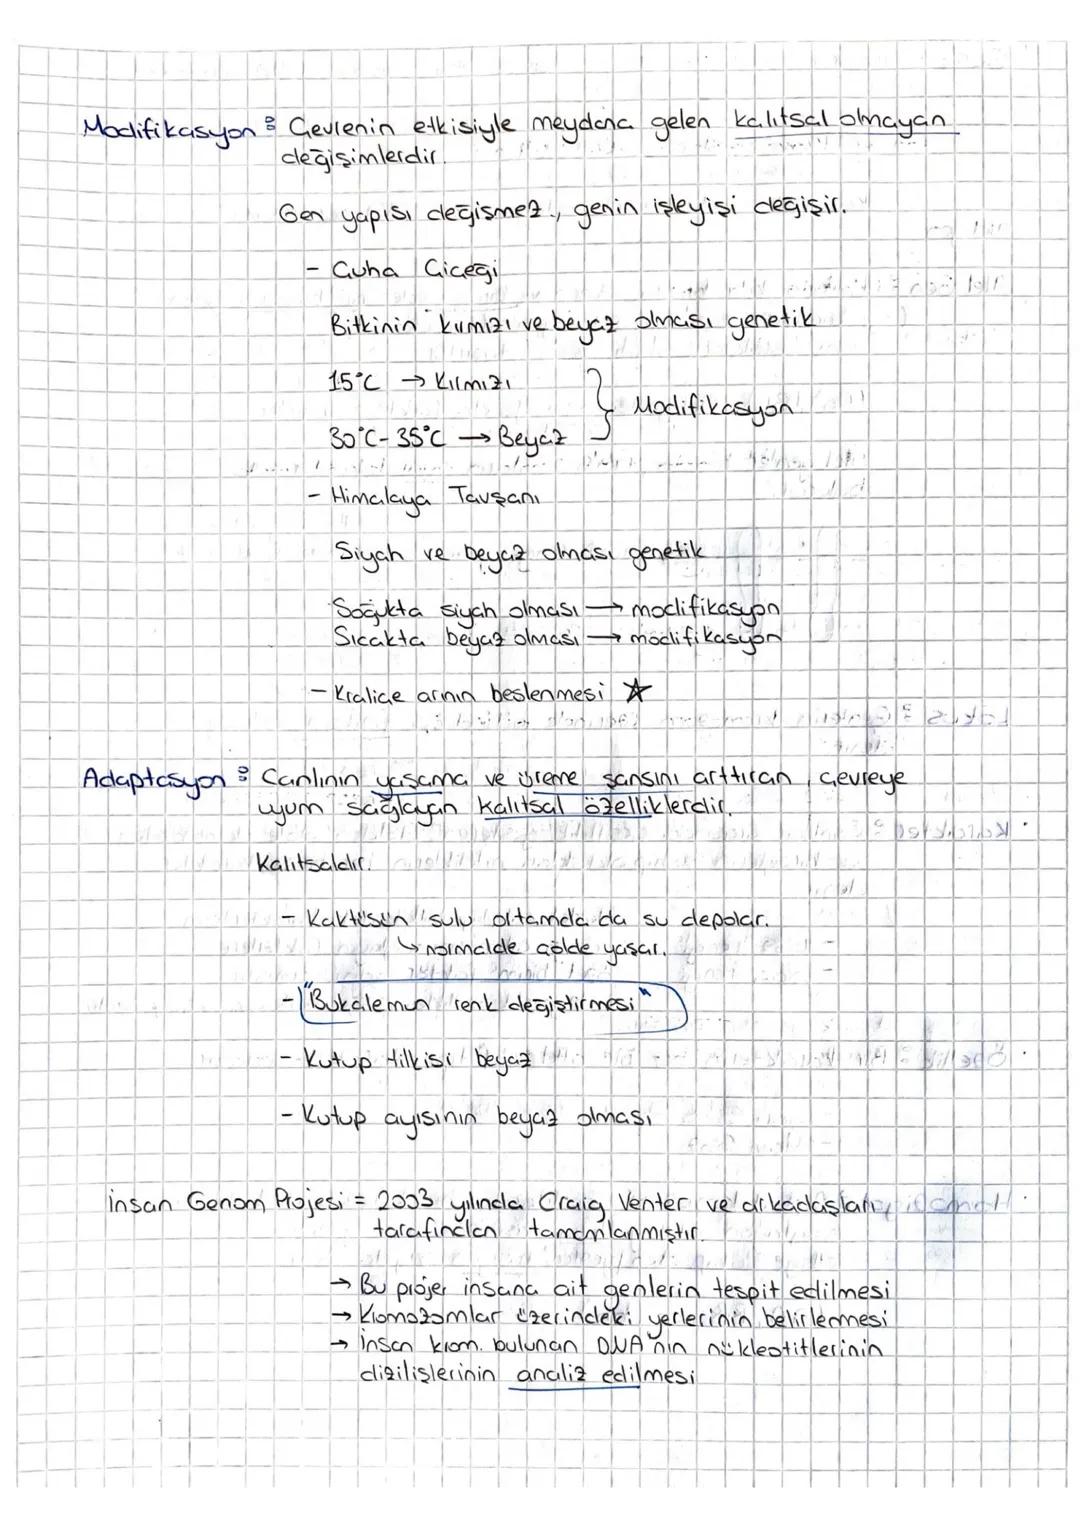 Modifikasyon : Çevrenin etkisiyle meydana gelen kalıtsal olmayan
değişimlerdir.
Gen yapısı değişmez, genin işleyişi değişir.
- Çuha Çiçeği
Bitkinin kırmızı ve beyaz olması genetik
15°C → Kırmızı
30°C-35°C → Beyaz
Modifikasyon
- Himalaya Tavşanı
Siyah ve beyaz olması genetik
Soğukta siyah olması → modifikasyon
Sıcakta beyaz olması → modifikasyon
- Kraliçe arının beslenmesi ☆
Adaptasyon : Canlının yaşama ve üreme şansını arttıran, çevreye
uyum sağlayan kalıtsal özelliklerdir.
Kalıtsaldır.
- Kaktüsün sulu ortamda da su depolar.
↳ normalde çölde yaşar.
- "Bukalemun renk değiştirmesi"
- Kutup tilkisi beyaz
- Kutup ayısının beyaz olması
İnsan Genom Projesi = 2003 yılında Craig Venter ve arkadaşları
tarafından tamamlanmıştır.
→ Bu projer insana ait genlerin tespit edilmesi
→ Kromozomlar üzerindeki yerlerinin belirlenmesi
→ İnsan krom. bulunan DNA'nın nükleotitlerinin
dizilişlerinin analiz edilmesi